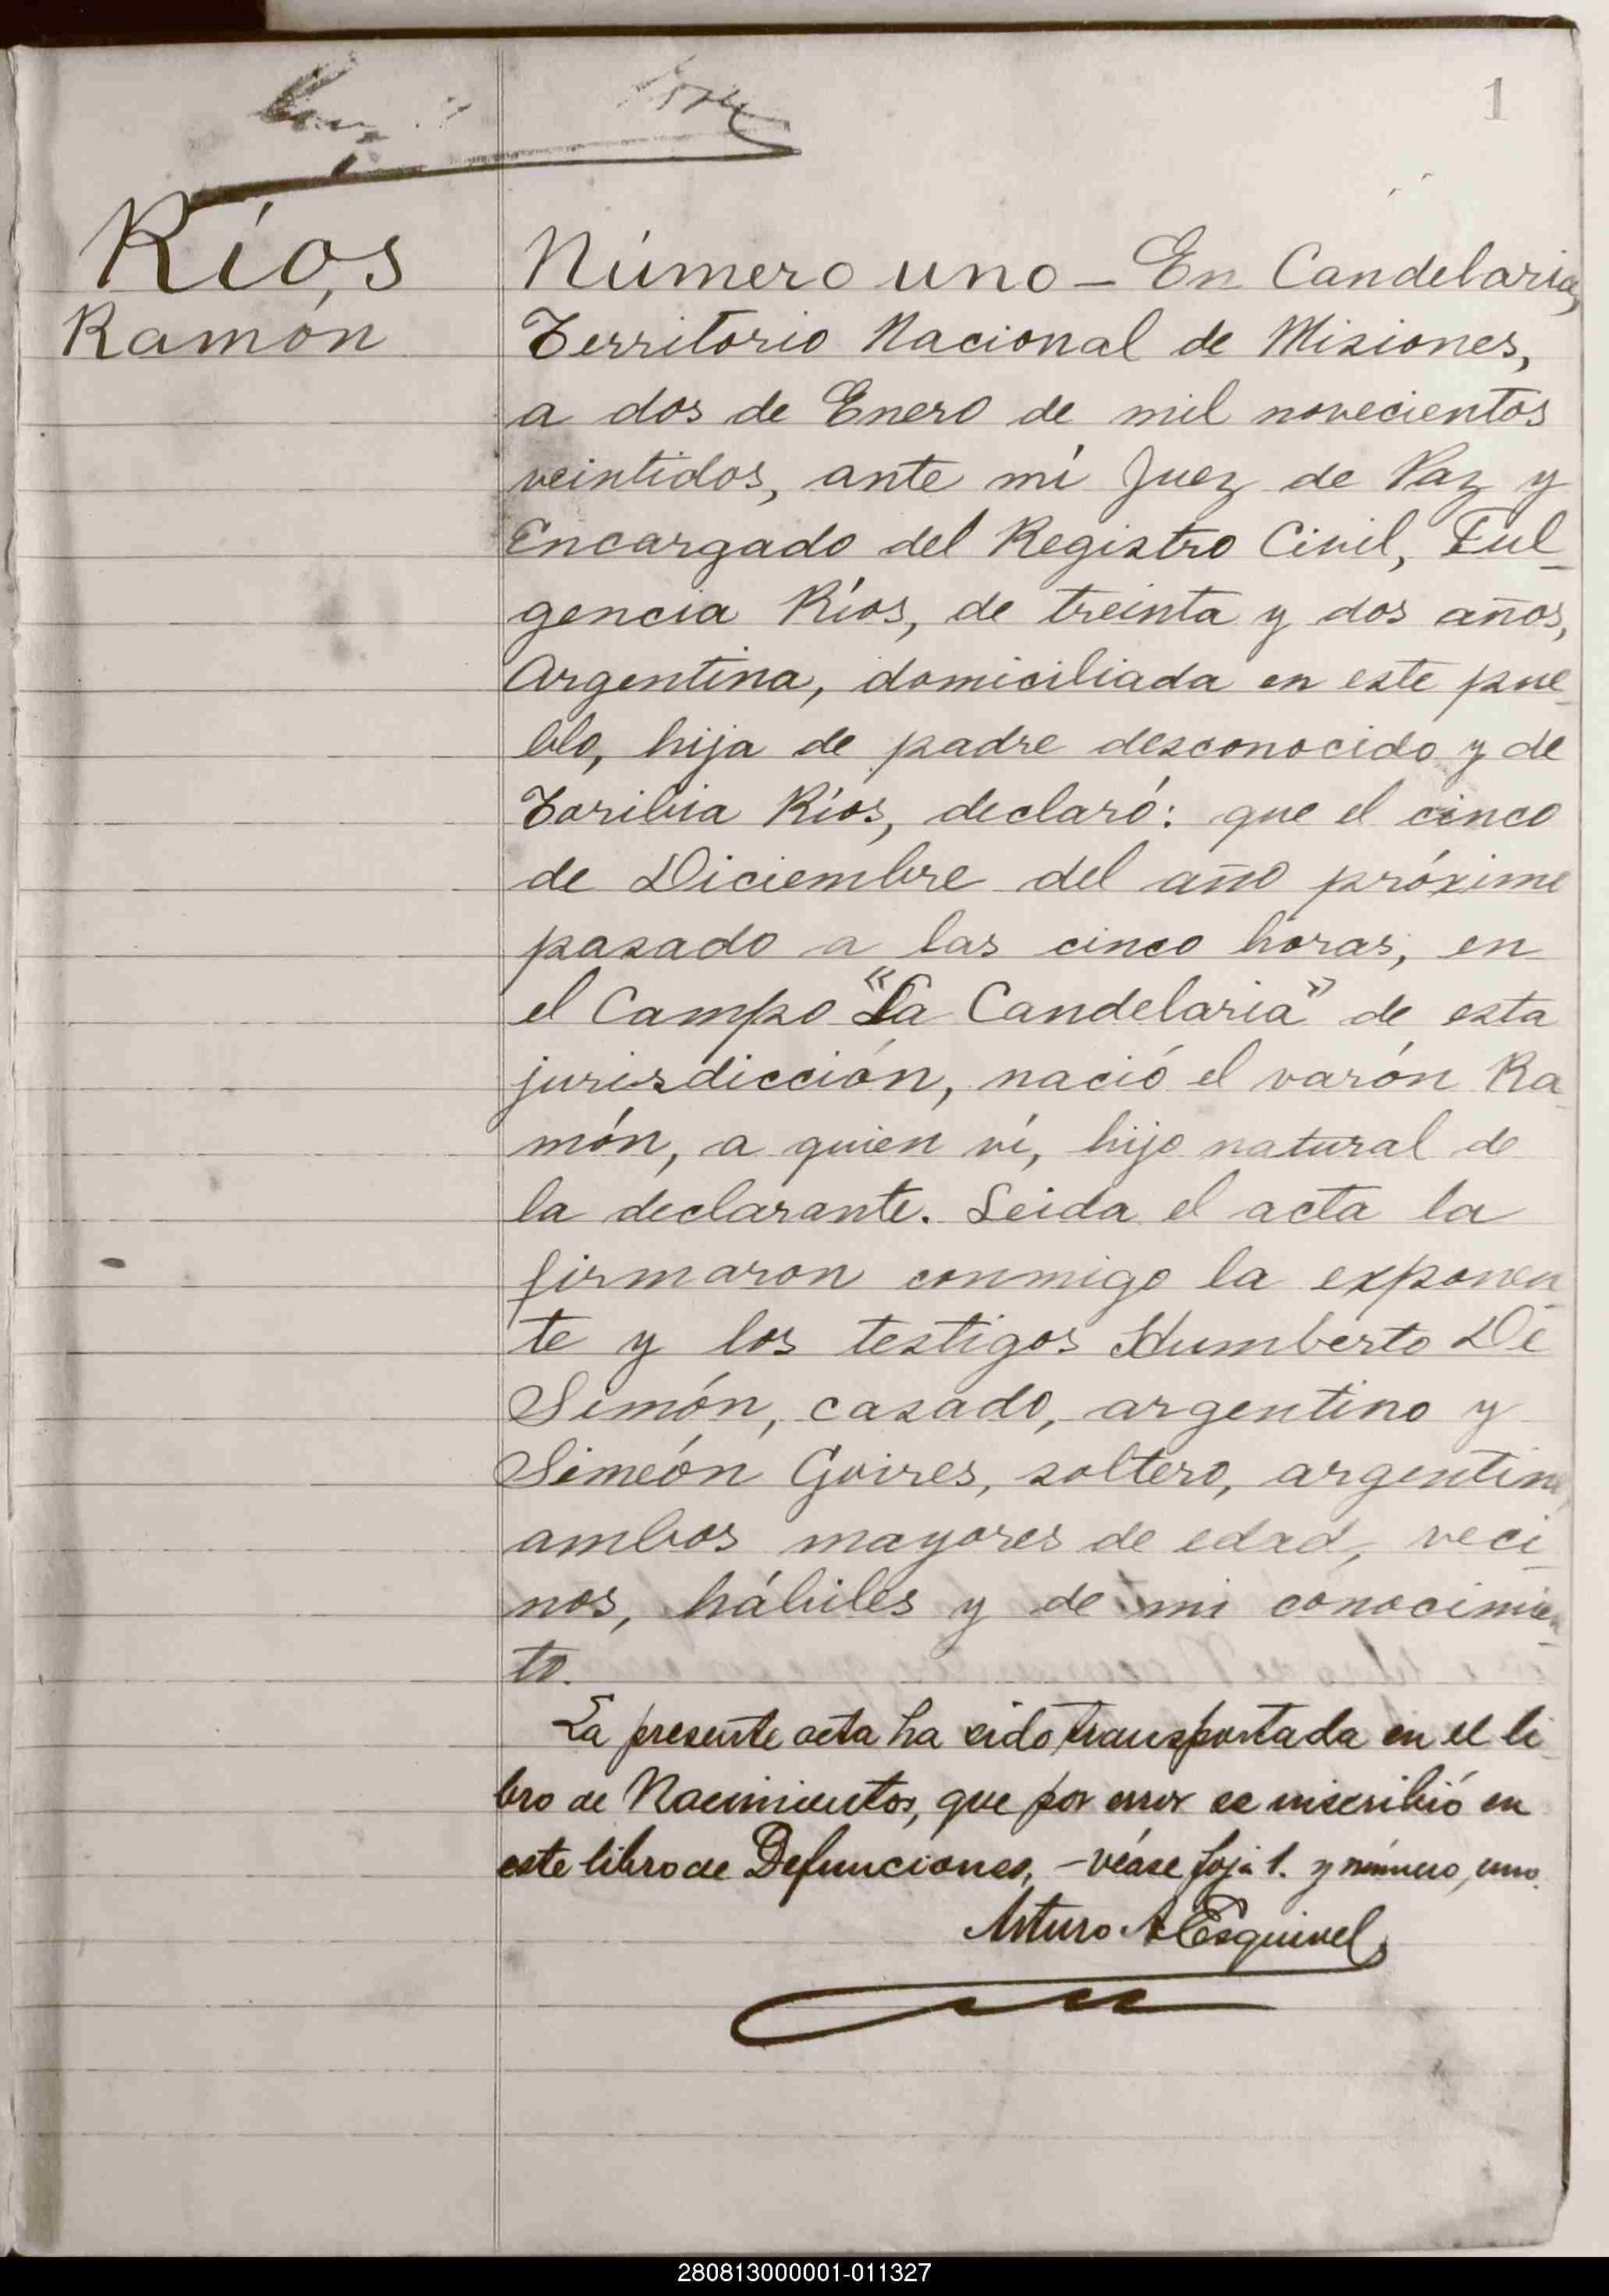 1
Ríos
Ramón
Número uno – En Candelaria,
Territorio Nacional de Misiones,
a dos de Enero de mil novecientos
veintidos, ante mí Juez de Paz y
Encargado del Registro Civil, Ful_
gencia Ríos, de treinta y dos años,
Argentina, domiciliada en este pue_
blo, hija de padre desconocido y de
Toribia Ríos, declaró: que el cinco
de Diciembre del año próximo
pasado a las cinco horas, en
el Campo "La Candelaria" de esta
jurisdicción, nació el varón Ra_
món, a quien ví, hijo natural de
la declarante. Leida el acta la
firmaron conmigo la exponen_
te y los testigos Humberto De
Simón, casado, argentino y
Simeón Goires, soltero, argentino,
ambos mayores de edad, veci_
nos, hábiles y de mi conocimien_
to.
La presente acta ha sido transportada en el li_
bro de Nacimientos, que por error se inscribió en
este libro de Defunciones, – véase foja 1. y número, uno.
Arturo A Esquivel
280813000001-011327